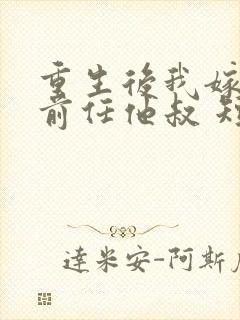 重生後我嫁
前任他叔 短
達米安-阿斯